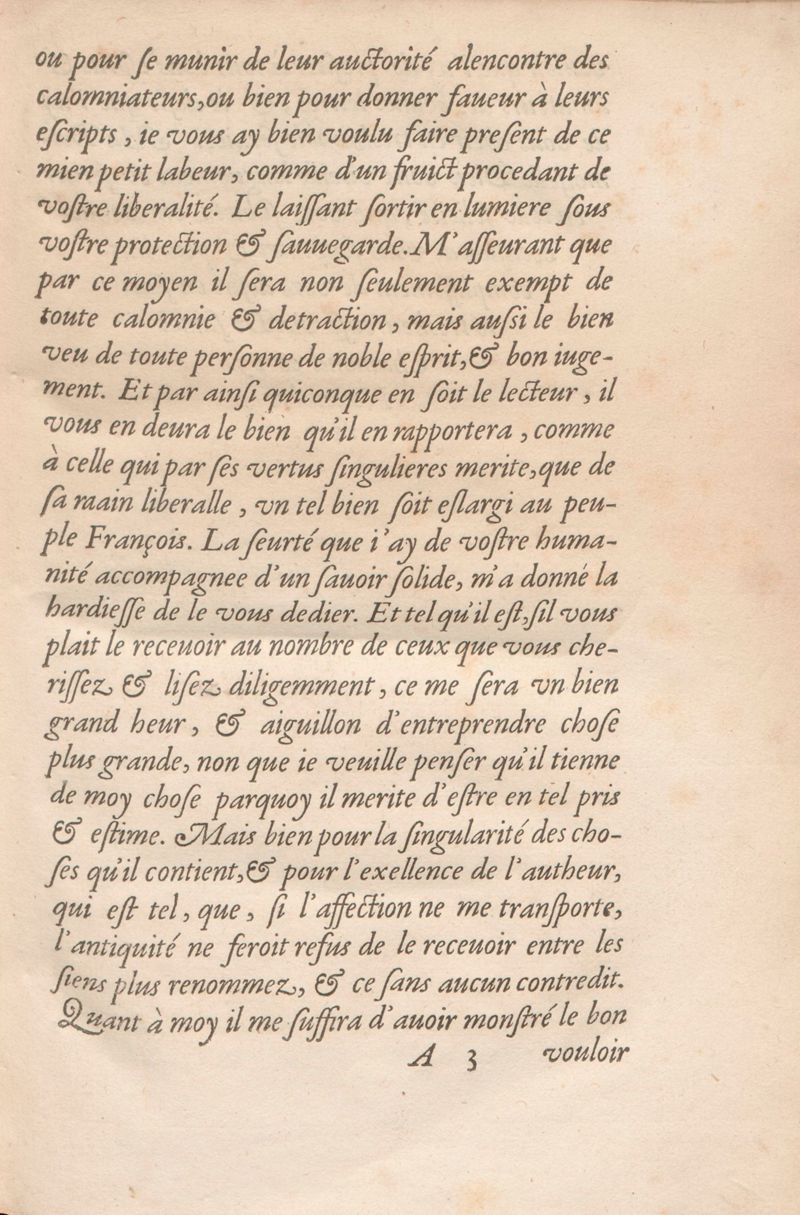 ou pour ſe munir de leur auctorité alencontre des
calomniateurs,ou bien pour donner faueur à leurs
eſcripts , ie vous ay bien voulu faire preſent de ce
mien petit labeur, comme d'un fruict procedant de
voſtre liberalité. Le laiſſant ſortir en lumiere ſous
voſtre protection & ſauuegarde. M'aſſeurant que
par ce moyen il ſera non ſeulement exempt de
toute calomnie & detraction , mais auſsi le bien
veu de toute perſonne de noble eſprit,& bon iuge-
ment. Et par ainſi quiconque en ſoit le lecteur , il
vous en deura le bien qu'il en rapportera , comme
à celle qui par ſes vertus ſingulieres merite,que de
ſa main liberalle , vn tel bien ſoit eſlargi au peu-
ple François. La ſeurté que i'ay de voſtre huma-
nité accompagnee d'un ſauoir ſolide, m'a donné la
hardieſſe de le vous dedier. Et tel qu'il eſt,ſil vous
plait le receuoir au nombre de ceux que vous che-
riſſez & liſez diligemment , ce me ſera vn bien
grand heur , & aiguillon d'entreprendre choſe
plus grande, non que ie veuille penſer qu'il tienne
de moy choſe parquoy il merite d'eſtre en tel pris
& eſtime. Mais bien pour la ſingularité des cho-
ſes qu'il contient,& pour l'exellence de l'autheur,
qui eſt tel , que , ſi l'affection ne me tranſporte,
l'antiquité ne feroit refus de le receuoir entre les
ſiens plus renommez, & ce ſans aucun contredit.
Quant à moy il me ſuffira d'auoir monſtré le bon
A 3 vouloir